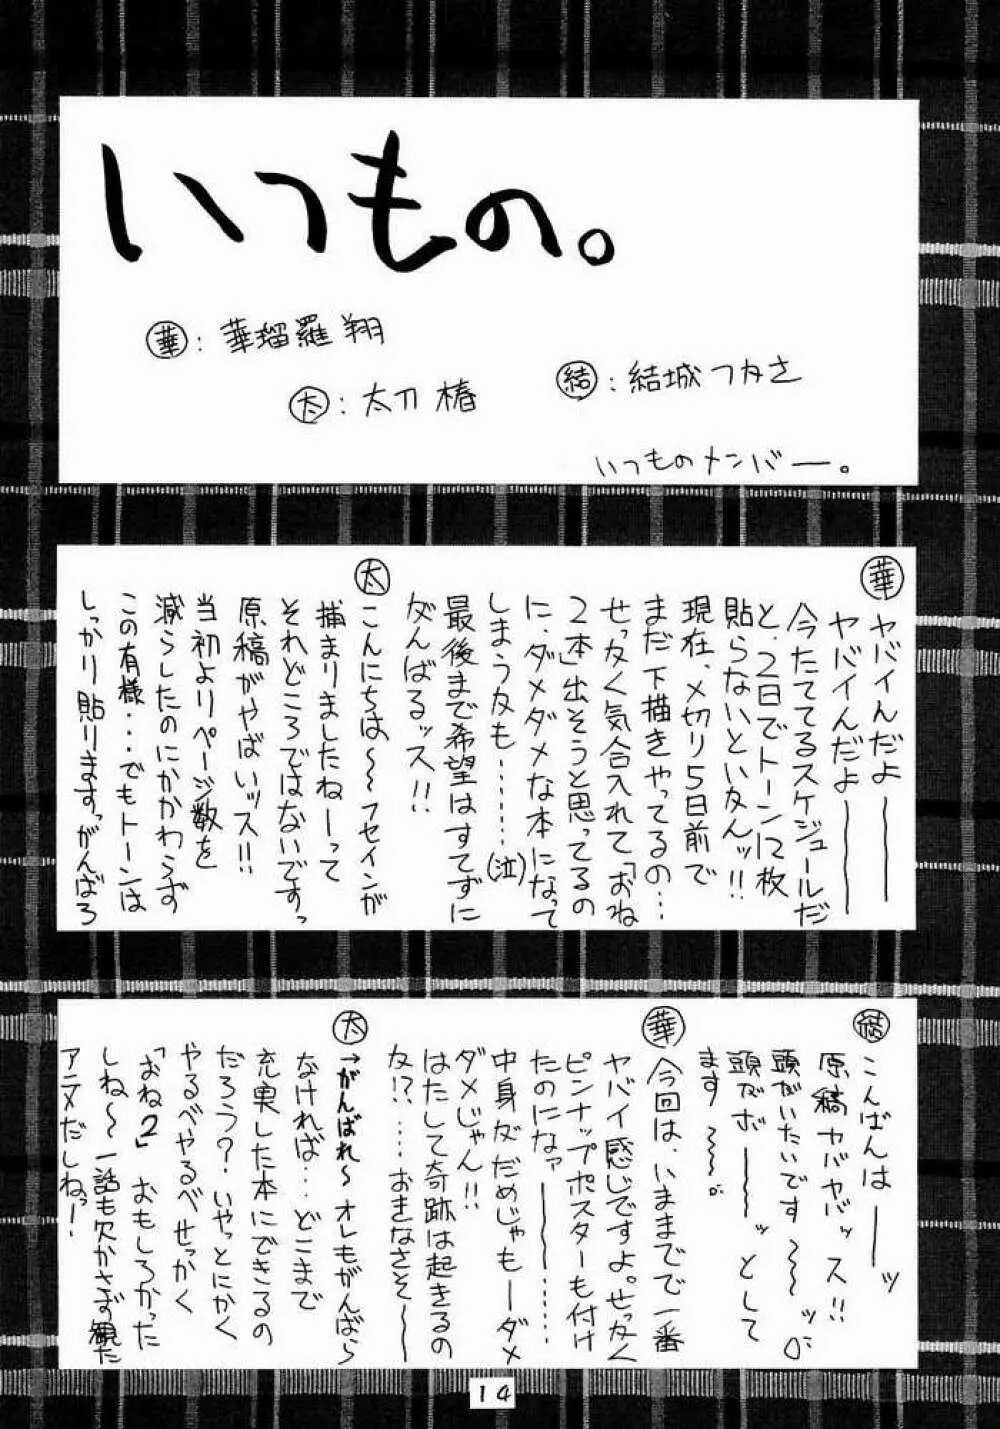 いつもの。
華：華瑠羅翔
太：太刀椿
結：結城つかさ
いつものメンバー。
華 ヤバイんだよ―――
ヤバイんだよ―――
今たててるスケジュールだ
と、2日でトーン12枚
貼らないといかんッ!!
現在、〆切り5日前で
まだ下描きやってるの…
せっかく気合入れて「おね
2本」出そうと思ってるの
に、ダメダメな本になって
しまうかも………(泣)
最後まで希望はすてずに
がんばるッス!!
太 こんにちは～～フセインが
捕まりましたねーって
それどころではないですっ
原稿がやばいッス!!
当初よりページ数を
減らしたのにかかわらず
この有様・・・でもトーンは
しっかり貼りますっがんばろ
結 こんばんは――ッ
原稿ヤバヤバッス!!
頭がいたいです～～ッ
頭がボ――ッとして
ます～～。
華 今回は、いままでで一番
ヤバイ感じですよ。せっかく
ピンナップポスターも付け
たのになァ―――………
中身がだめじゃもーダメ
ダメじゃん!!
はたして奇跡は起きるの
か!?……おきなさそ～――
太 →がんばれ～オレもがんばら
なければ…どこまで
充実した本にできるの
だろう?いやっとにかく
やるべやるべせっかく
「おね2」おもしろかった
しね～～一話も欠かさず観た
アニメだしねっ!
14